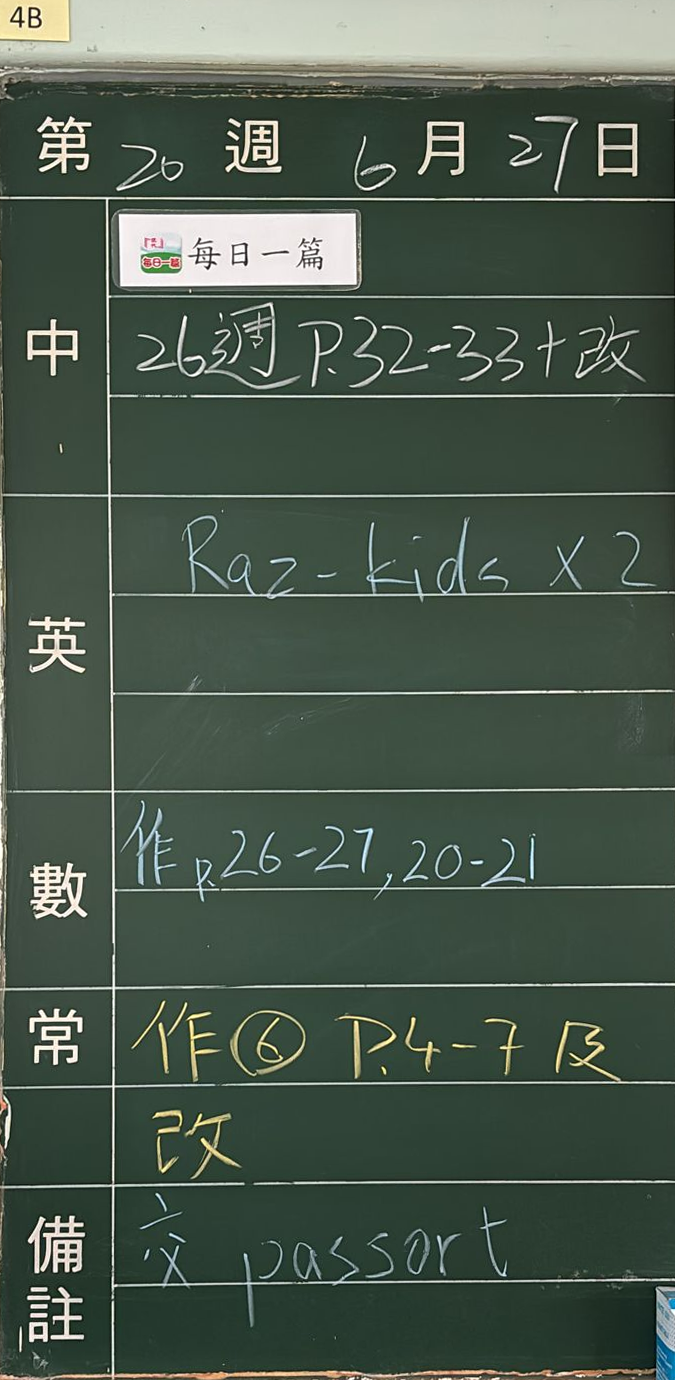 4B
第20週 6月27日
中
每日一篇 每日一篇
26週 P.32-33+改
英
Raz-kids x 2
數
作 p.26-27,20-21
常
作⑥ P.4-7 及
改
備註
交 passort